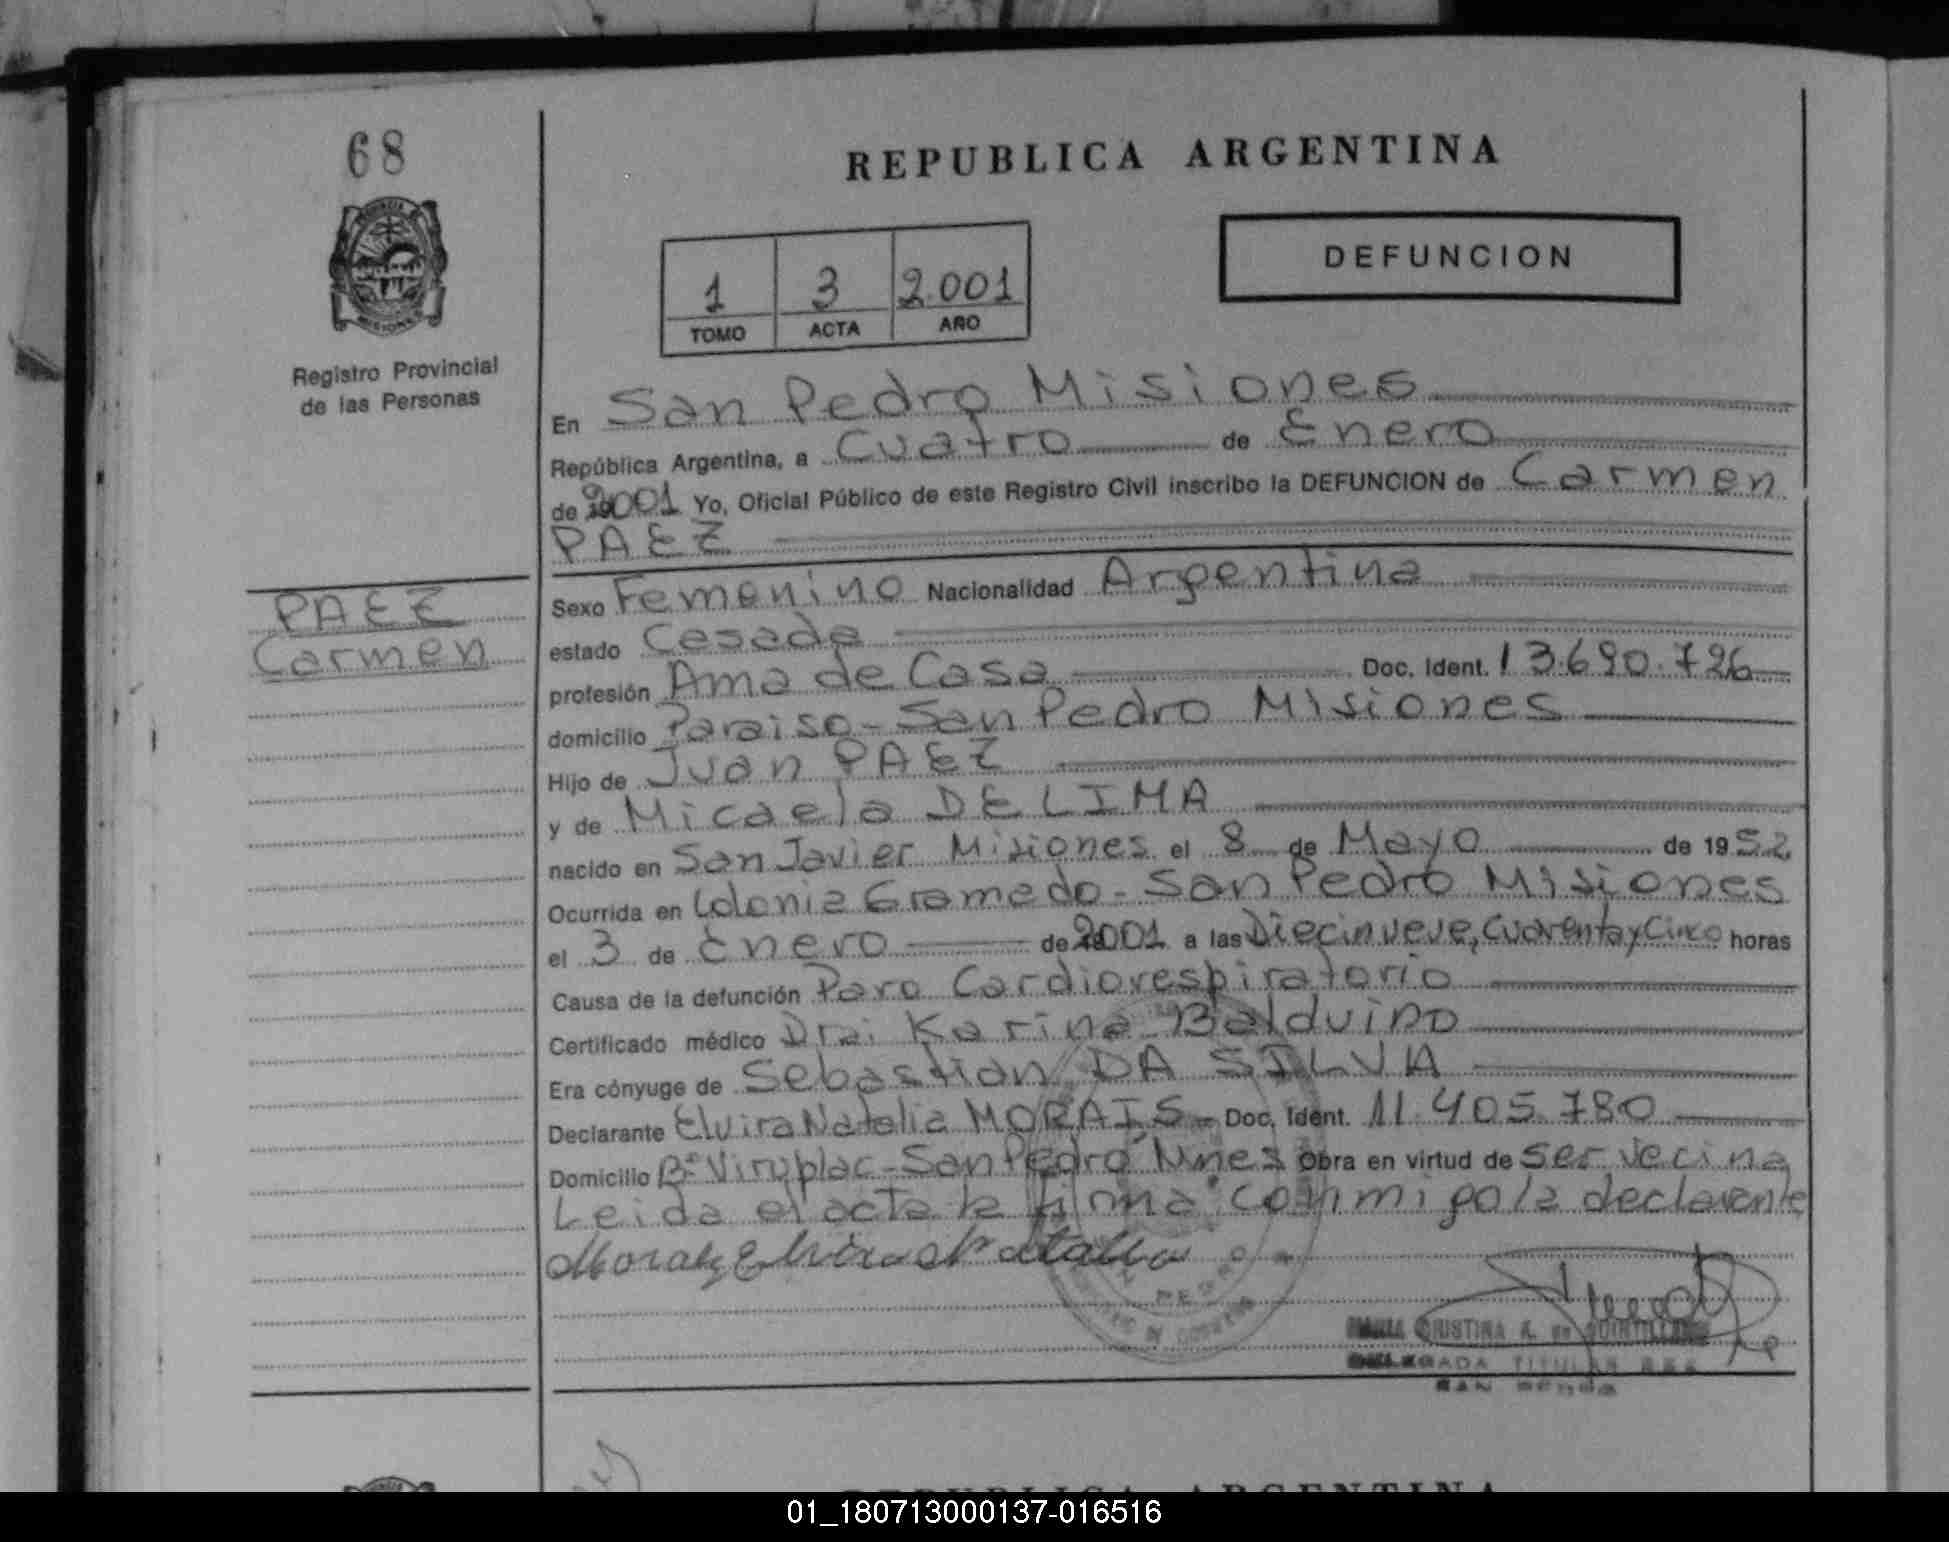 68
REPUBLICA ARGENTINA
DEFUNCION
1 3 2.001
TOMO ACTA AÑO
Registro Provincial
de las Personas
PAEZ
Carmen
En San Pedro Misiones
República Argentina, a Cuatro de Enero
de 2001 Yo, Oficial Público de este Registro Civil inscribo la DEFUNCION de Carmen
PAEZ
Sexo Femenino Nacionalidad Argentina
estado Casada
profesión Ama de Casa Doc. Ident. 13.690.726
domicilio Paraiso - San Pedro Misiones
Hijo de Juan PAEZ
y de Micaela DE LIMA
nacido en San Javier Misiones el 8 de Mayo de 1952
Ocurrida en Colonia Gramado - San Pedro Misiones
el 3 de Enero de 2001 a las Diecinueve, Cuarenta y Cinco horas
Causa de la defunción Paro Cardiorespiratorio
Certificado médico Dra: Karina Balduino
Era cónyuge de Sebastian DA SILVA
Declarante Elvira Natalia MORAIS - Doc. Ident. 11.405.780
Domicilio Bº Viruplac - San Pedro Mnes Obra en virtud de ser vecina
Leida el acta la firma conmigo la declarante
Morais Elvira Natalia
MARIA CRISTINA A. de
DELEGADA TITULAR
SAN PEDRO
REPUBLICA ARGENTINA
01_180713000137-016516